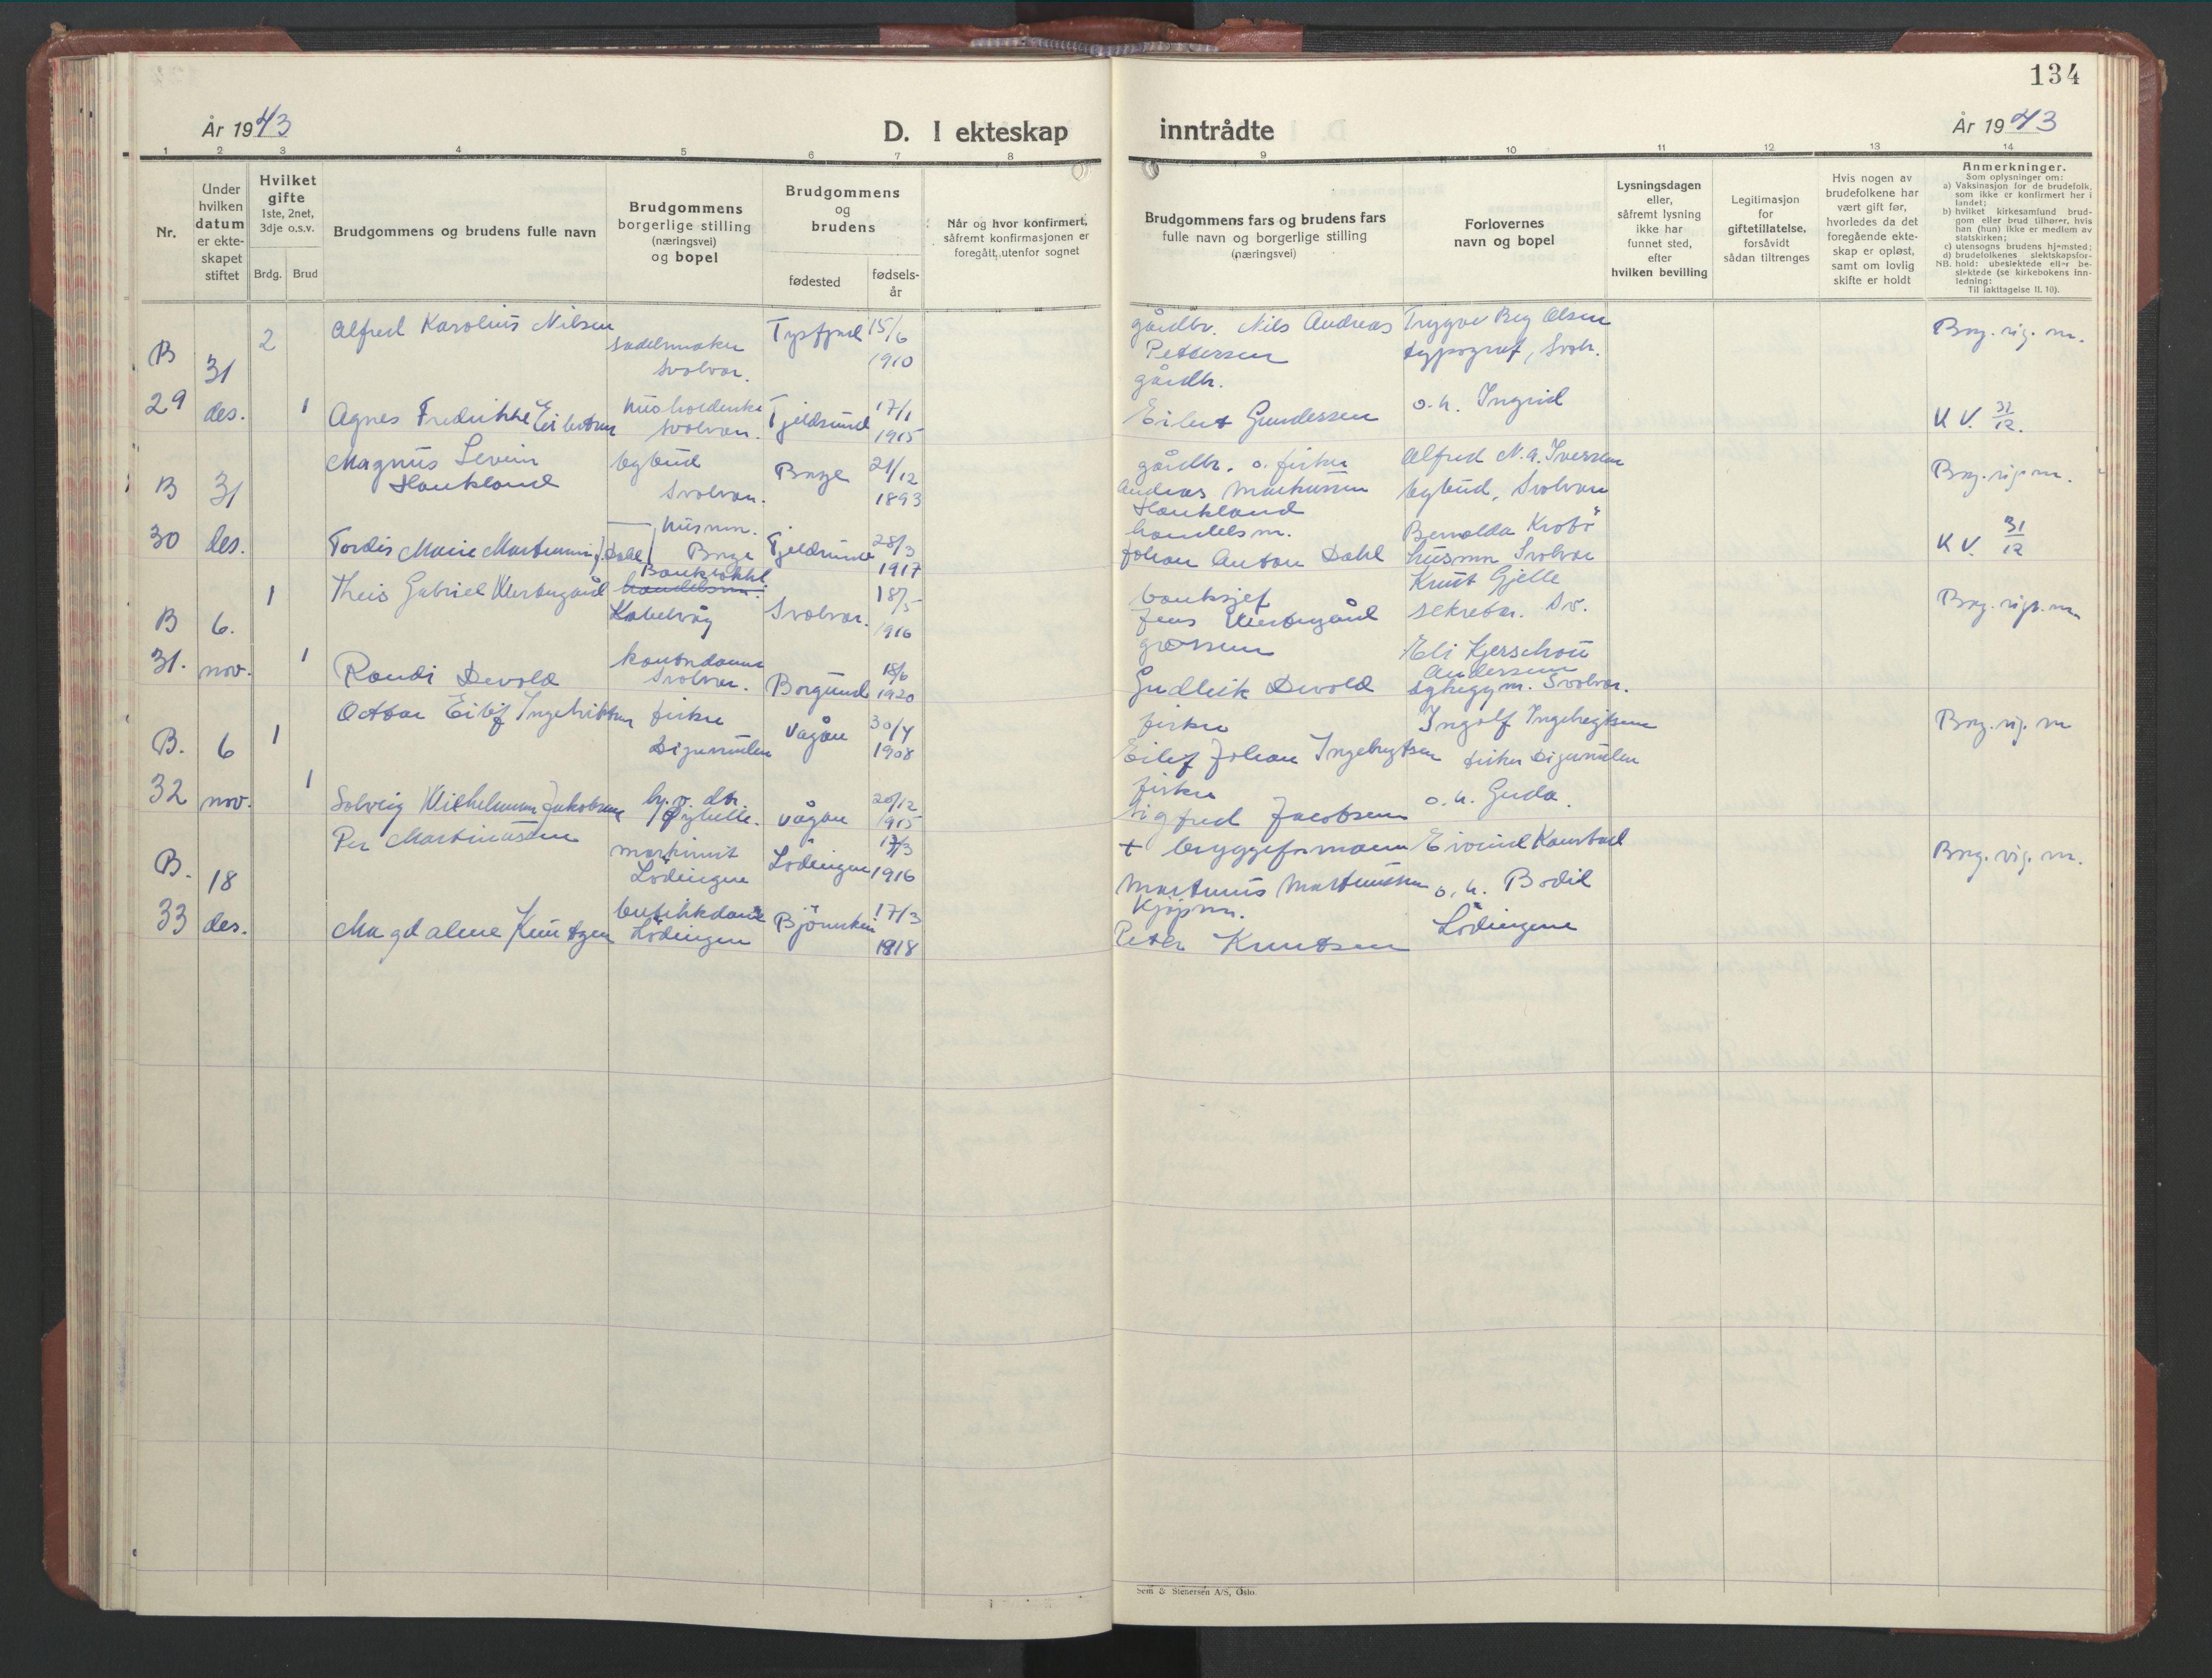 134
År 1943
D. I ekteskap inntrådte
År 1943
1 2 3 4 5 6 7 8 9 10 11 12 13 14
Nr.
Under hvilken datum er ekteskapet stiftet
Hvilket gifte
1ste, 2net, 3dje o.s.v.
Brdg. Brud
Brudgommens og brudens fulle navn
Brudgommens borgerlige stilling (næringsvei) og bopel
Brudgommens og brudens
fødested
fødselsår
Når og hvor konfirmert, såfremt konfirmasjonen er foregått utenfor sognet
Brudgommens fars og brudens fars fulle navn og borgerlige stilling (næringsvei)
Forlovernes navn og bopel
Lysningsdagen eller, såfremt lysning ikke har funnet sted, efter hvilken bevilling
Legitimasjon for giftetillatelse, forsåvidt sådan tiltrenges
Hvis nogen av brudefolkene har vært gift før, hvorledes da det foregående ekteskap er opløst, samt om lovlig skifte er holdt
Anmerkninger.
Som oplysninger om:
a) Vaksinasjon for de brudefolk, som ikke er konfirmert her i landet;
b) hvilket kirkesamfund brudgom eller brud tilhører, hvis han (hun) ikke er medlem av statskirken;
c) utensogns brudens hjemsted;
d) brudefolkenes slektskapsforhold: ubeslektede eller beslektede (se kirkebokens innledning:
NB.
Til iakttagelse II. 10).
B 29
31 des.
2
Alfred Karolius Nilsen
sadelmaker Svolvær.
Tysfjord 15/6 1910
gårdbr. Nils Andreas Pettersen
Trygve Berg Olsen typograf, Svolv.
Borg. vig. m.
1
Agnes Fredrikke Eilertsen
husholderske Svolvær.
Tjeldsund 17/1 1915
gårdbr. Eilert Gundessen
o. h. Ingrid
K V. 31/12.
B 30
31 des.
Magnus Severin Haukland
bybud Svolvær.
Borge 21/12 1893
gårdbr. o. fisker Andreas Markussen Haukland
Alfred N. A. Iversen bybud, Svolvær
Borg. vig. m.
Tordis Marie Martinussen f. Dahl
husm. Borge
Tjeldsund 28/3 1917
handelsm. Johan Anton Dahl
Bernolda Krobö husm Svolvær
K V. 31/12
B 31.
6. nov.
1
Theis Gabriel Westergård
handelsm.
Kabelvåg
Svolvær. 18/5 1916
banksjef Jens Westergård
Knut Gjelle sekretær. Sv.
Borg. vig. m
1
Randi Devold
kontordame Svolvær.
Borgund 18/6 1920
grosserer Gudleik Devold
Eli Kjerschou Andersen sykegym. Svolvær.
B. 32
6 nov.
1
Octtar Eilif Ingebriktsen
fisker Digermulen
Vågan 30/4 1908
fisker Eilif Johan Ingebrigtsen
Ingolf Ingebrigtsen fisker Digermulen
Borg. vig. m
1
Solveig Wilhelmine Jakobsen
hj. v. dtr.
Vågan 20/12 1915
fisker Sigfred Jacobsen
o. h. Guda.
B. 33
18 des.
Per Martinussen
maskinist Lödingen
Lödingen 17/3 1916
+ bryggeformann Martinus Martinussen
Eivind Kanstad
Borg. vig. m.
Magdalene Knutzen
butikkdame Lödingen
17/3 1918
kjøpm. Peter Knutsen
o. h. Bodil Lödingen
Sem & Stenersen A/S, Oslo.